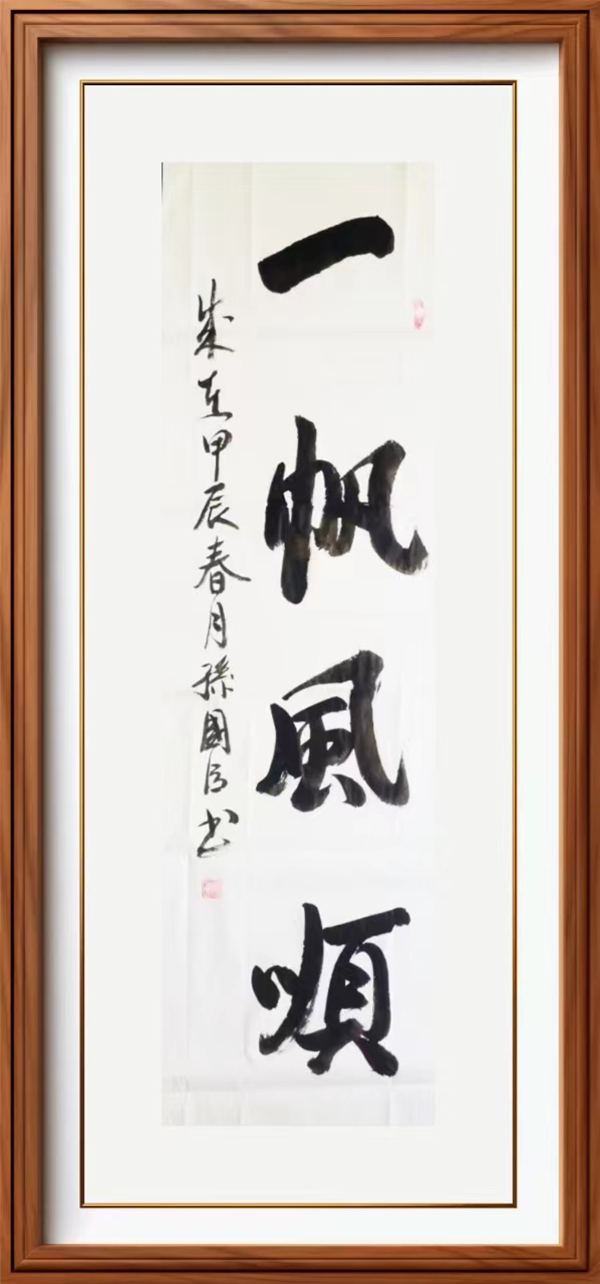 一帆風順
歲在甲辰春月孫國书